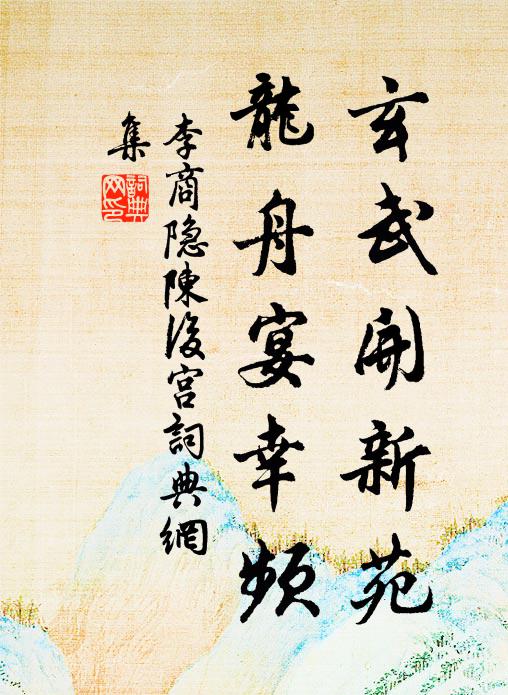 玄武開新苑
龍舟宴幸頻
李商隐陳後宮詞典網
集
詞典
网印